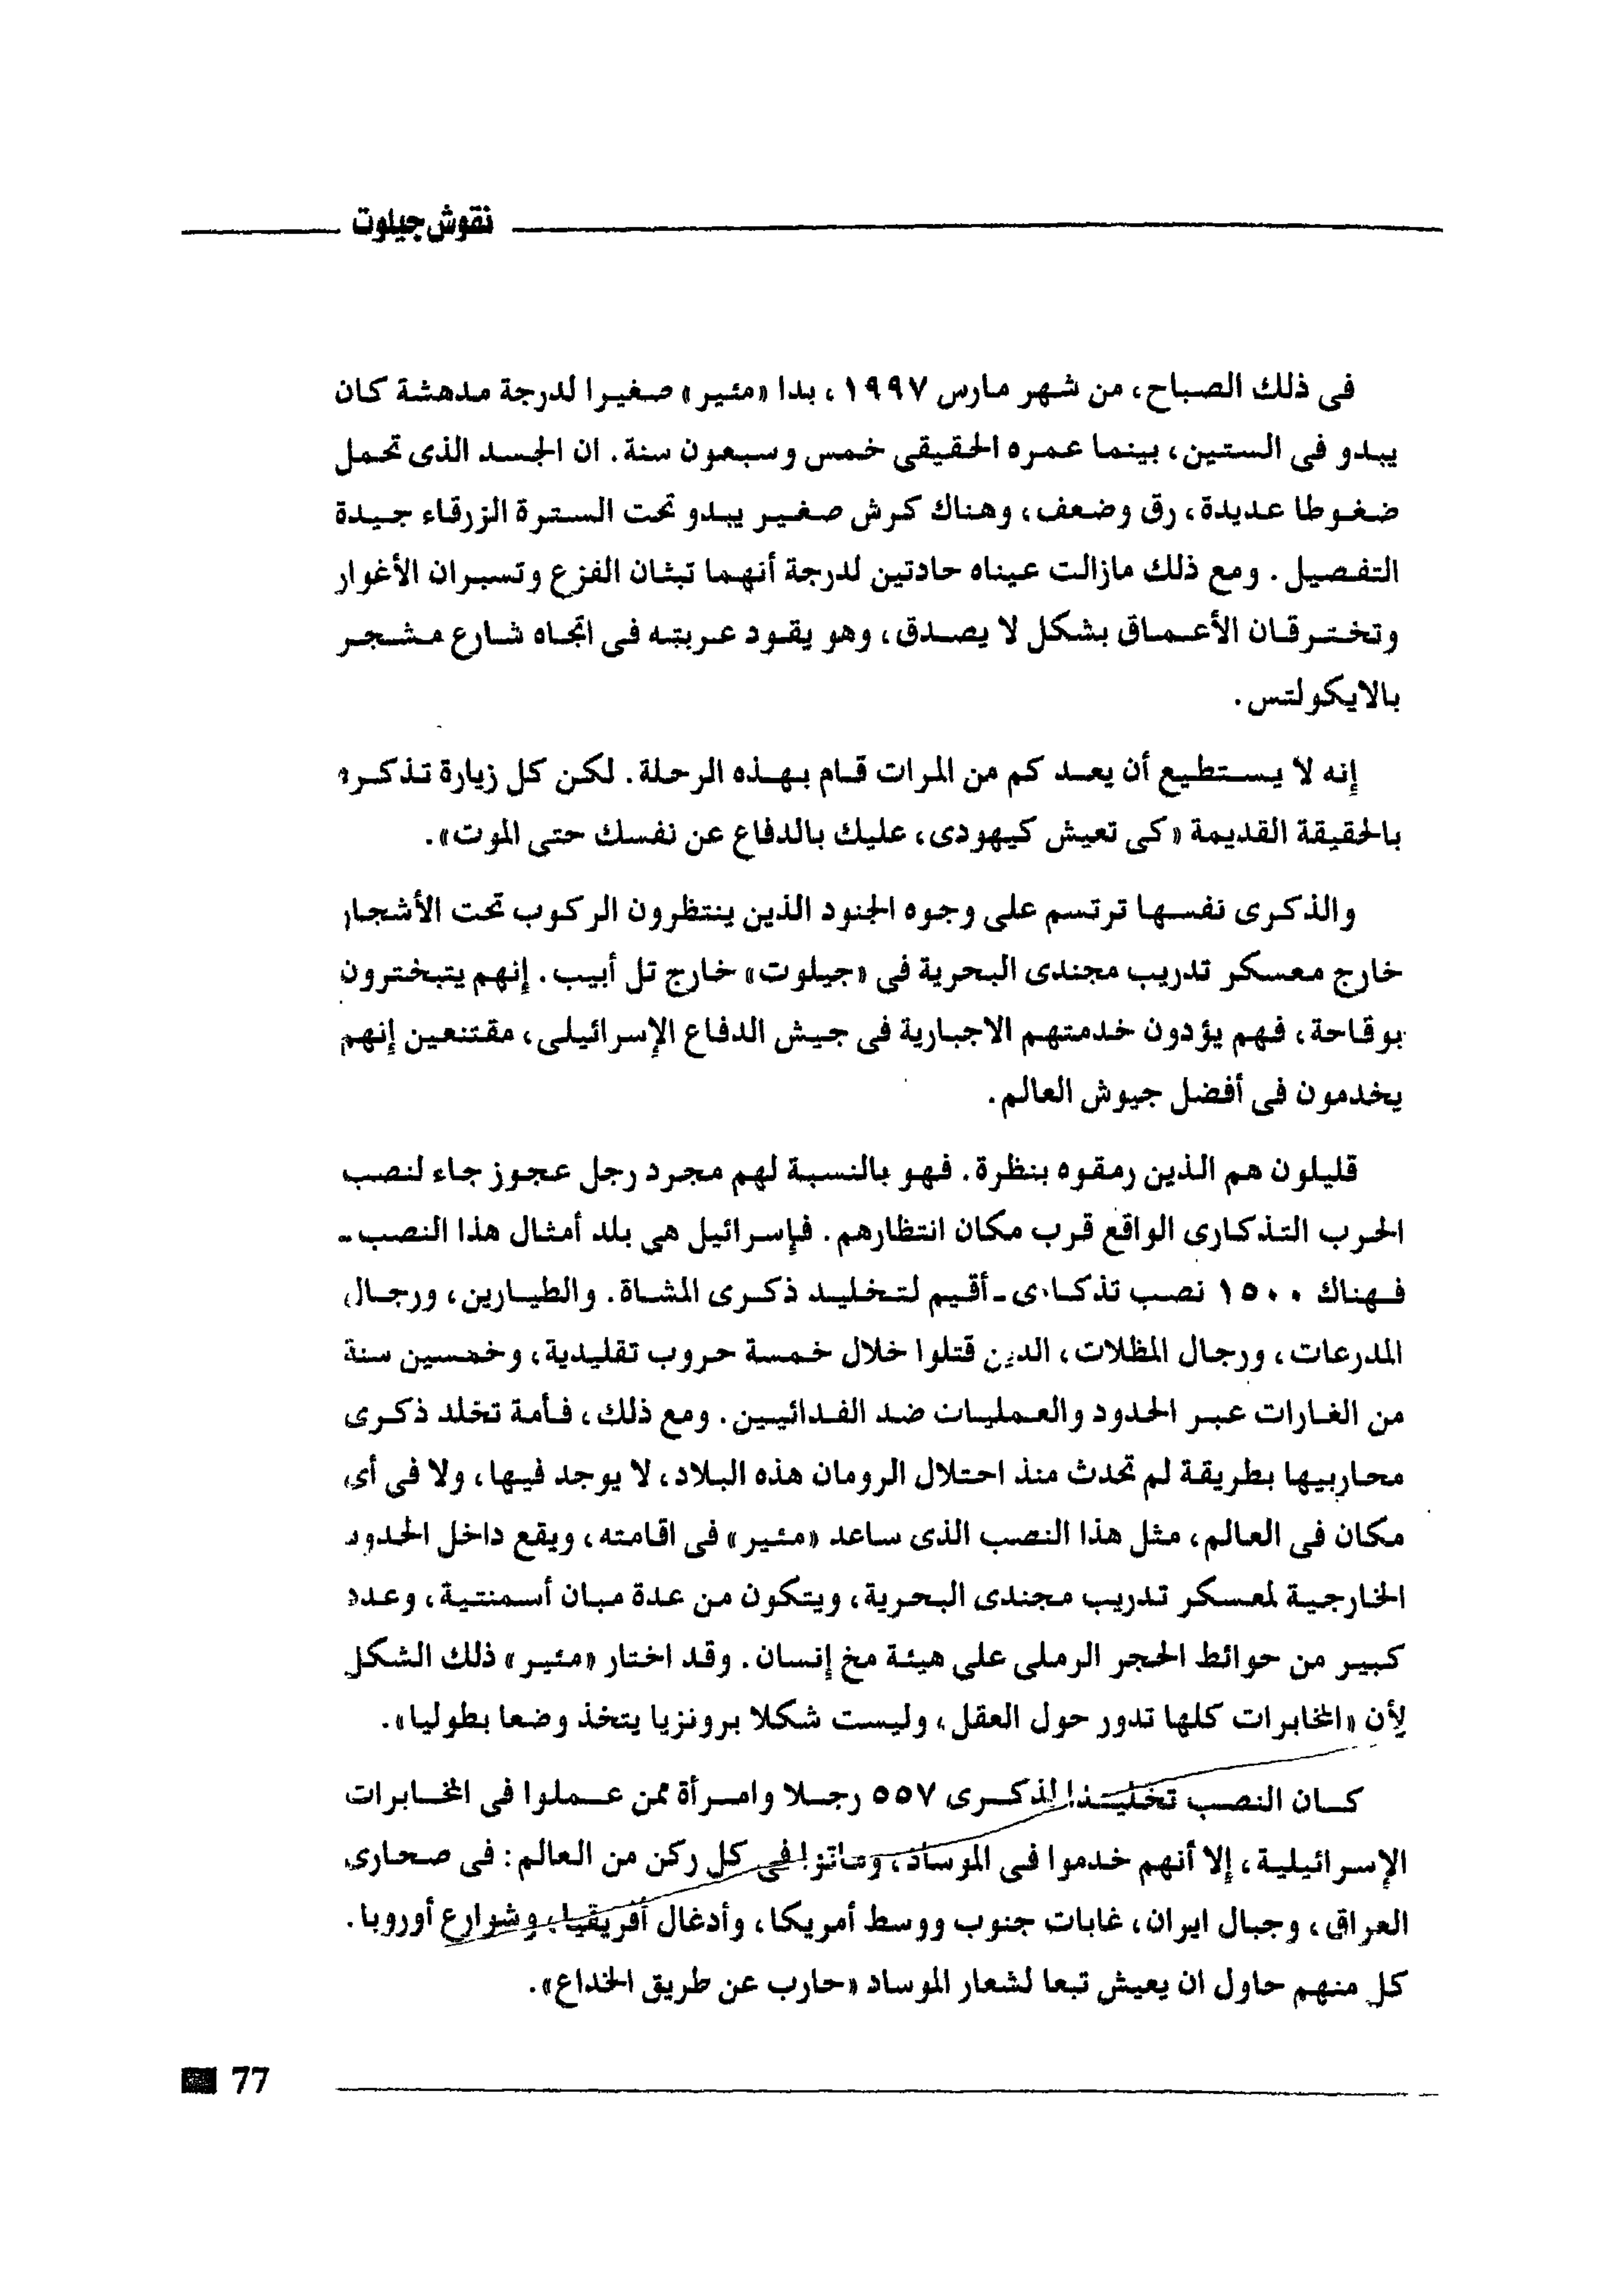 نقوش جيلوت
فى ذلك الصباح، من شهر مارس ١٩٩٧، بدا «مئير» صغيرا لدرجة مدهشة كان
يبدو فى الستين، بينما عمره الحقيقى خمس وسبعون سنة. ان الجسد الذى تحمل
ضغوطا عديدة، رق وضعف، وهناك كرش صغير يبدو تحت السترة الزرقاء جيدة
التفصيل. ومع ذلك مازالت عيناه حادتين لدرجة أنهما تبثان الفزع وتسبران الأغوار
وتخترقان الأعماق بشكل لا يصدق، وهو يقود عربته فى اتجاه شارع مشجر
بالايكولتس.
إنه لا يستطيع أن يعد كم من المرات قام بهذه الرحلة. لكن كل زيارة تذكره
بالحقيقة القديمة «كى تعيش كيهودى، عليك بالدفاع عن نفسك حتى الموت».
والذكرى نفسها ترتسم على وجوه الجنود الذين ينتظرون الركوب تحت الأشجار
خارج معسكر تدريب مجندى البحرية فى «جيلوت» خارج تل أبيب. إنهم يتبخترون
بوقاحة، فهم يؤدون خدمتهم الاجبارية فى جيش الدفاع الإسرائيلى، مقتنعين إنهم
يخدمون فى أفضل جيوش العالم.
قليلون هم الذين رمقوه بنظرة. فهو بالنسبة لهم مجرد رجل عجوز جاء لنصب
الحرب التذكارى الواقع قرب مكان انتظارهم. فإسرائيل هى بلد أمثال هذا النصب -
فهناك ١٥٠٠ نصب تذكارى - أقيم لتخليد ذكرى المشاة. والطيارين، ورجال
المدرعات، ورجال المظلات، الذين قتلوا خلال خمسة حروب تقليدية، وخمسين سنة
من الغارات عبر الحدود والعمليات ضد الفدائيين. ومع ذلك، فأمة تخلد ذكرى
محاربيها بطريقة لم تحدث منذ احتلال الرومان هذه البلاد، لا يوجد فيها، ولا فى أى
مكان فى العالم، مثل هذا النصب الذى ساعد «مئير» فى اقامته، ويقع داخل الحدود
الخارجية لمعسكر تدريب مجندى البحرية، ويتكون من عدة مبان أسمنتية، وعدد
كبير من حوائط الحجر الرملى على هيئة مخ إنسان. وقد اختار «مئير» ذلك الشكل
لأن «المخابرات كلها تدور حول العقل، وليست شكلا برونزيا يتخذ وضعا بطوليا».
كان النصب تخليدا لذكرى ٥٥٧ رجلا وامرأة ممن عملوا فى المخابرات
الإسرائيلية، إلا أنهم خدموا فى الموساد، وماتوا فى كل ركن من العالم: فى صحارى
العراق، وجبال ايران، غابات جنوب ووسط أمريكا، وأدغال أفريقيا، وشوارع أوروبا.
كل منهم حاول ان يعيش تبعا لشعار الموساد «حارب عن طريق الخداع».
77